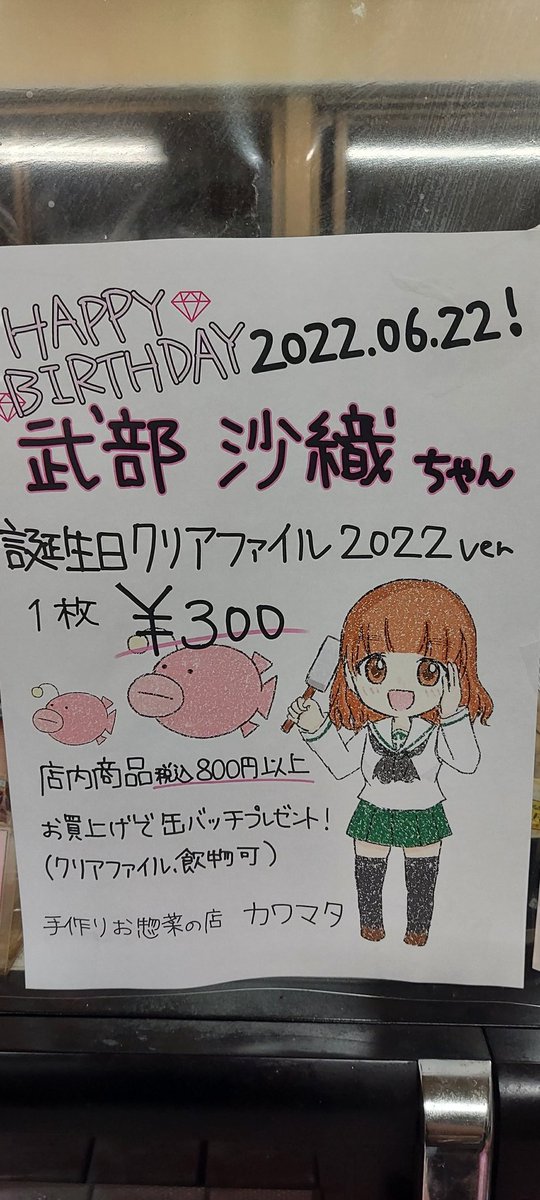 HAPPY
BIRTHDAY 2022.06.22!
武部 沙織 ちゃん
誕生日クリアファイル2022ver
1枚 ¥300
店内商品税込800円以上
お買上げで缶バッチプレゼント!
(クリアファイル、飲物可)
手作りお惣菜の店 カワマタ